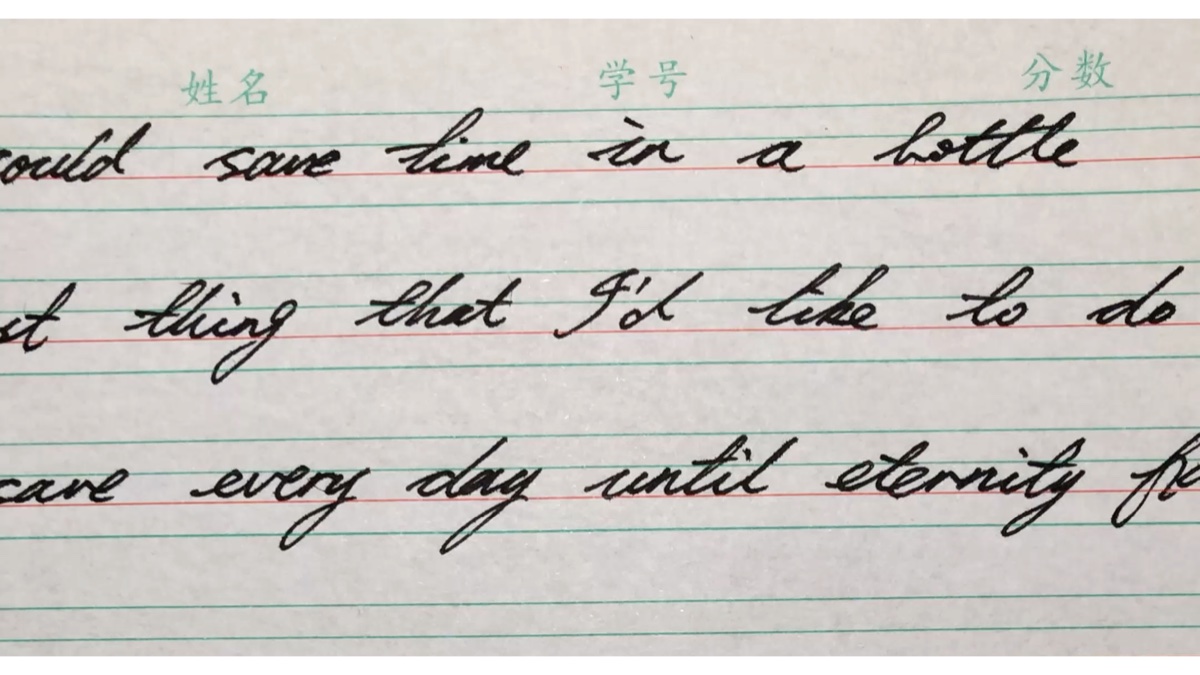 姓名 学号 分数
ould save time in a bottle
st thing that I'd like to do
save every day until eternity